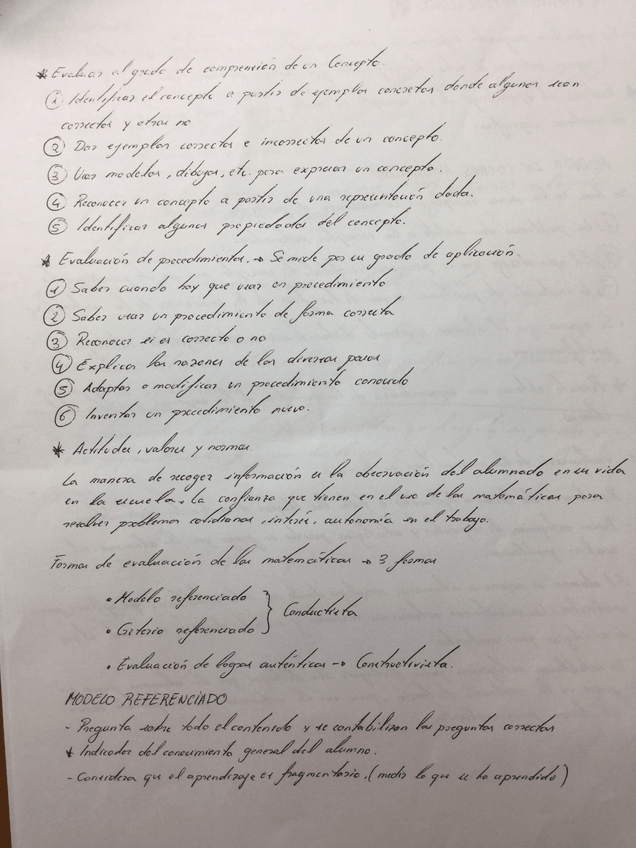 * Evaluar el grado de comprensión de un Concepto.
① Identificar el concepto a partir de ejemplos concretos donde algunos sean
correctos y otros no
② Dar ejemplos correctos e incorrectos de un concepto.
③ Usar modelos, dibujos, etc. para expresar un concepto.
④ Reconocer un concepto a partir de una representación dada.
⑤ Identificar algunas propiedades del concepto.
* Evaluación de procedimientos. → Se mide por su grado de aplicación.
① Saber cuando hay que usar un procedimiento
② Saber usar un procedimiento de forma correcta
③ Reconocer si es correcto o no
④ Explicar las razones de los diversos pasos
⑤ Adaptar o modificar un procedimiento conocido
⑥ Inventar un procedimiento nuevo.
* Actitudes, valores y normas.
La manera de recoger información es la observación del alumnado en su vida
en la escuela. La confianza que tienen en el uso de las matemáticas para
resolver problemas cotidianos, interés, autonomía en el trabajo.
Formas de evaluación de las matemáticas → 3 formas
• Modelo referenciado
• Criterio referenciado } Conductista
• Evaluación de logros auténticos → Constructivista.
MODELO REFERENCIADO
- Pregunta sobre todo el contenido y se contabilizan las preguntas correctas
* Indicador del conocimiento general del alumno.
- Considera que el aprendizaje es fragmentario. (medir lo que se ha aprendido)